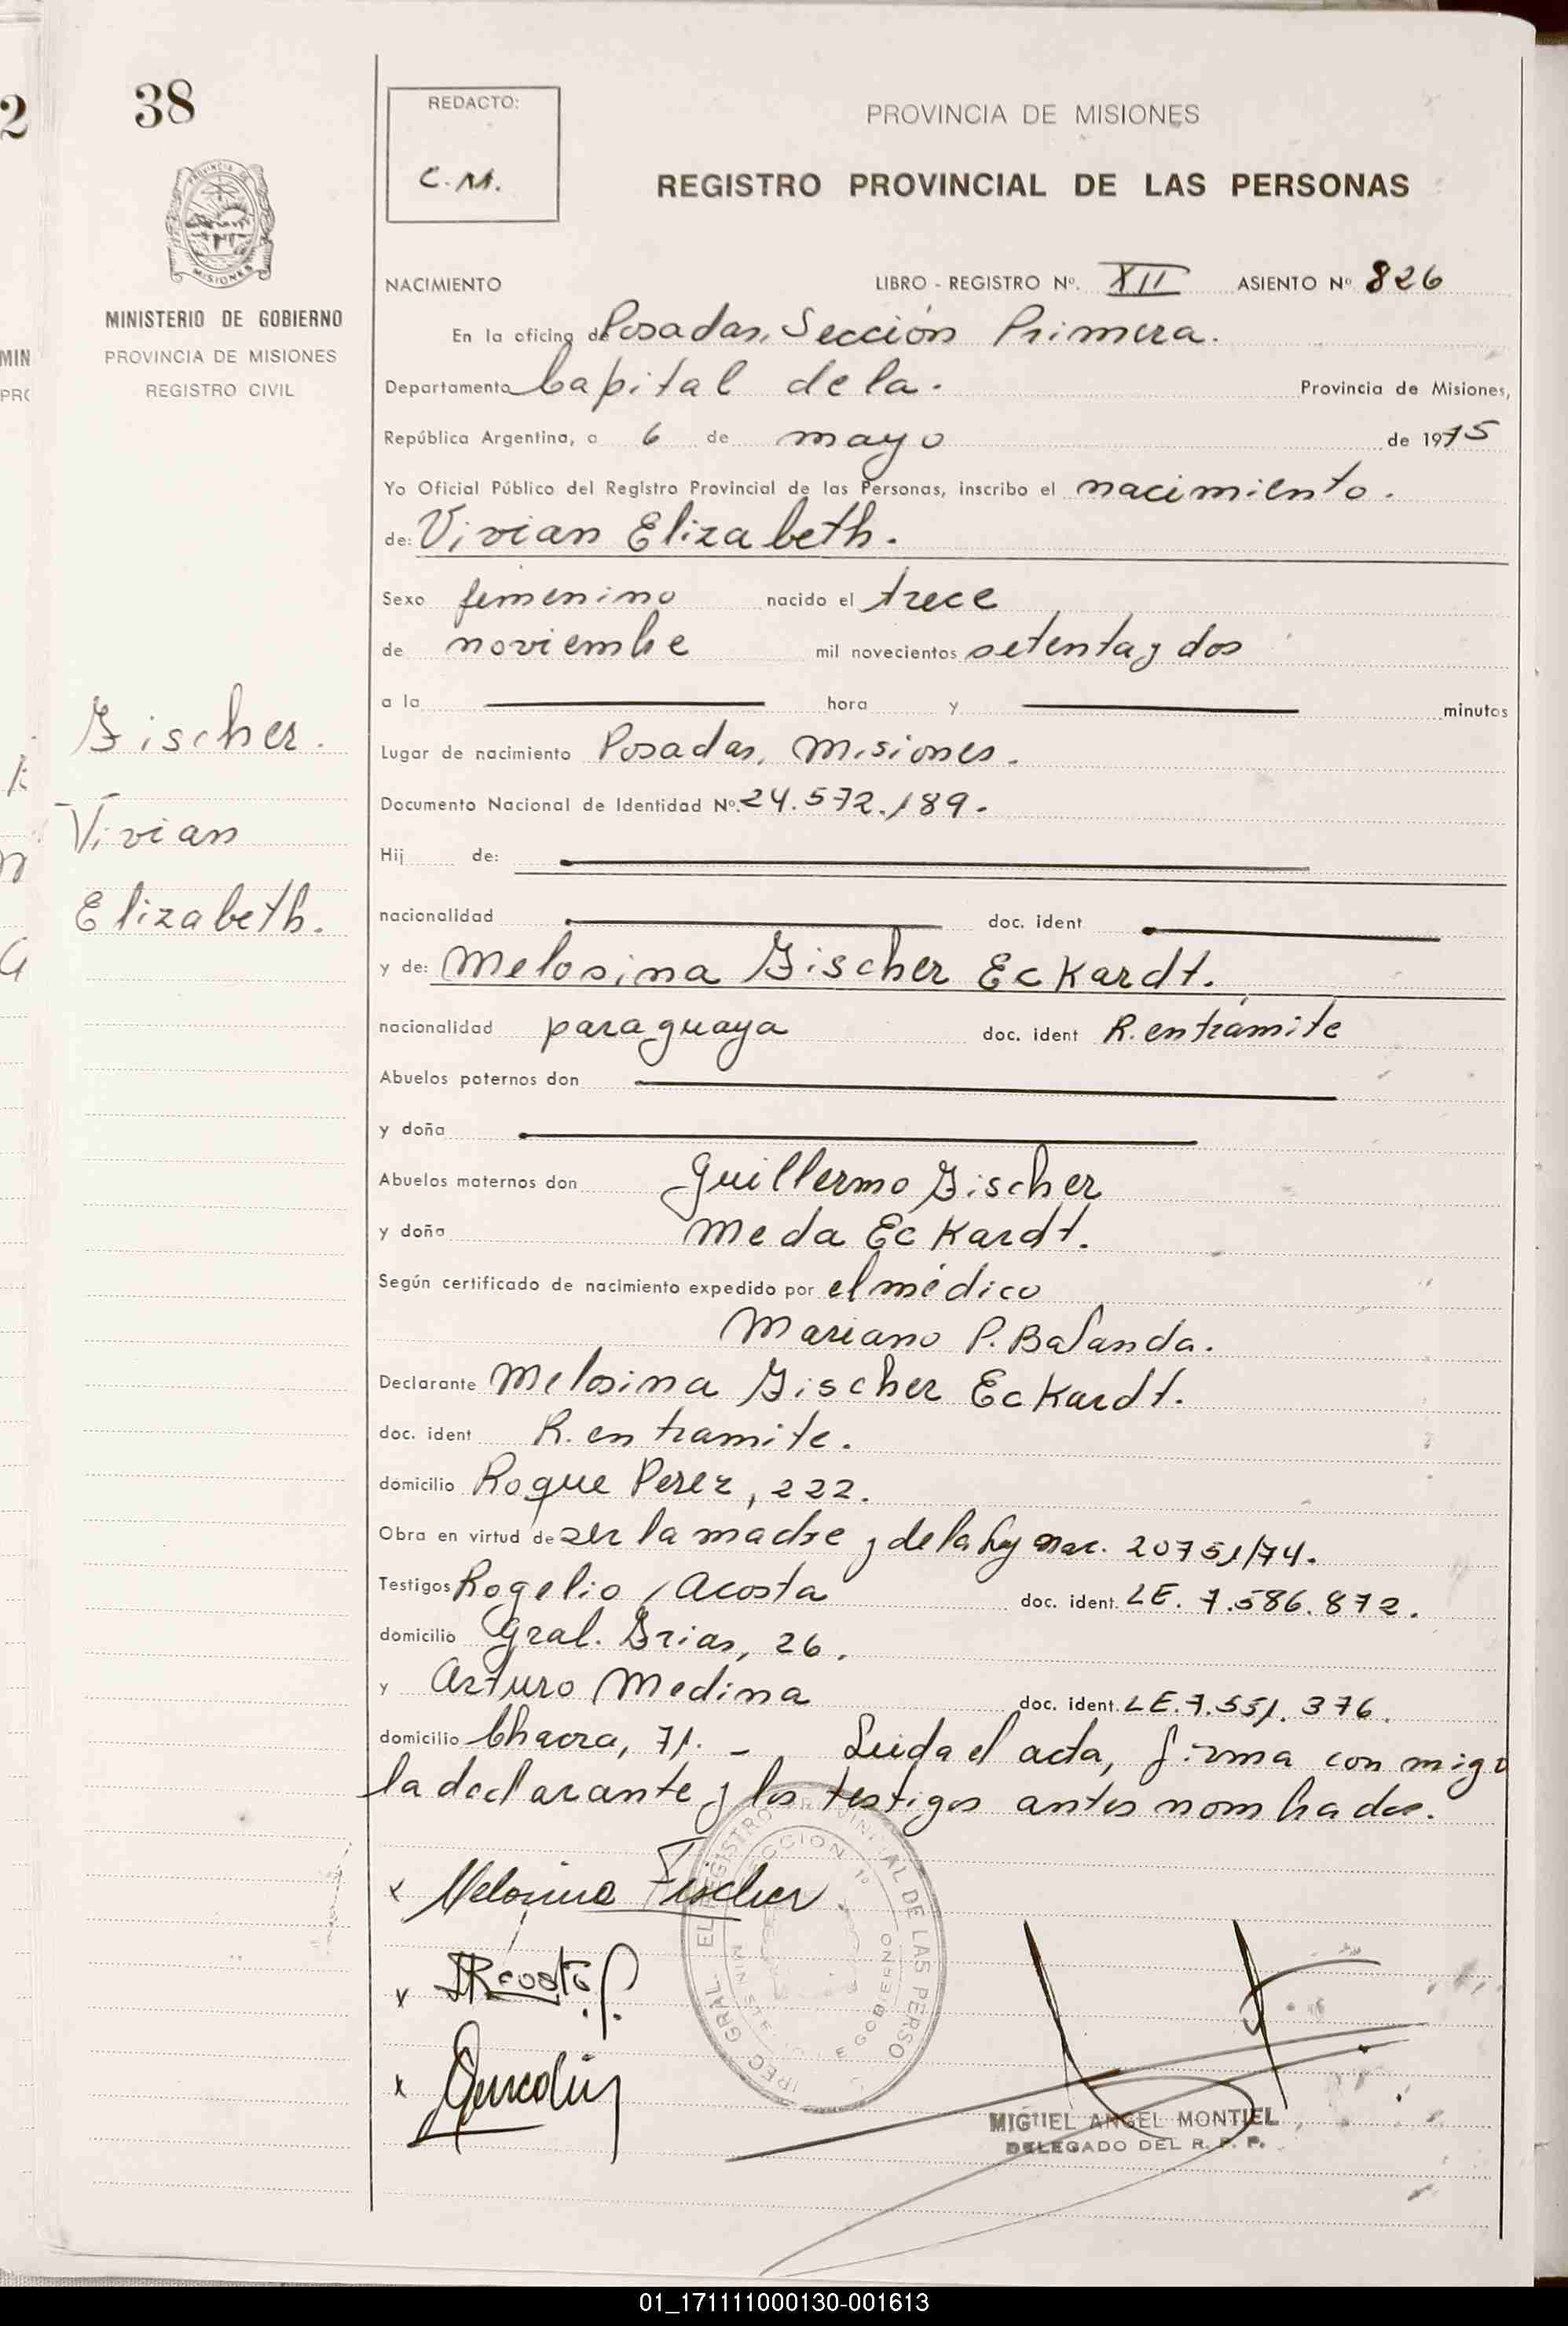 38
REDACTO:
C.M.
PROVINCIA DE MISIONES
REGISTRO PROVINCIAL DE LAS PERSONAS
MISIONES
MINISTERIO DE GOBIERNO
PROVINCIA DE MISIONES
REGISTRO CIVIL
NACIMIENTO LIBRO - REGISTRO Nº. XII ASIENTO Nº 826
En la oficina de Posadas, Sección Primera.
Departamento Capital de la. Provincia de Misiones,
República Argentina, a 6 de mayo de 1975
Yo Oficial Público del Registro Provincial de las Personas, inscribo el nacimiento.
de: Vivian Elizabeth.
Sexo femenino nacido el trece
de noviembre mil novecientos setenta y dos
a la hora y minutos
Fischer.
Vivian
Elizabeth.
Lugar de nacimiento Posadas, Misiones.
Documento Nacional de Identidad Nº. 24.572.189.
Hij de:
nacionalidad doc. ident
y de: Melosina Fischer Eckardt.
nacionalidad paraguaya doc. ident R. en trámite
Abuelos paternos don
y doña
Abuelos maternos don Guillermo Fischer
y doña Meda Eckardt.
Según certificado de nacimiento expedido por el médico
Mariano P. Balanda.
Declarante Melosina Fischer Eckardt.
doc. ident R. en tramite.
domicilio Roque Perez, 222.
Obra en virtud de ser la madre y de la ley nac. 20751/74.
Testigos Rogelio Acosta doc. ident. LE. 7.586.872.
domicilio Gral. Frias, 26.
y Arturo Medina doc. ident. LE. 7.551.376.
domicilio Chacra, 71. - Leida el acta, firma con migo
la declarante y los testigos antes nombrados.
x Melosina Fischer
MIGUEL ANGEL MONTIEL
DELEGADO DEL R. P. P.
01_171111000130-001613